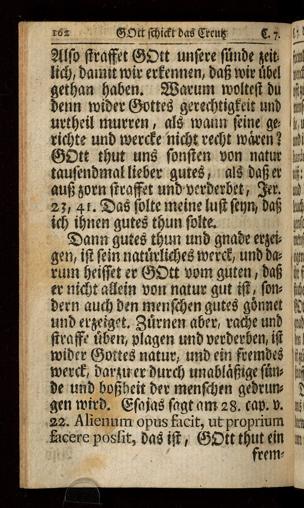 162 GOtt schickt das Creutz C. 7.
Also straffet GOtt unsere sünde zeit-
lich, damit wir erkennen, daß wir übel
gethan haben. Warum woltest du
denn wider Gottes gerechtigkeit und
urtheil murren, als wann seine ge-
richte und wercke nicht recht wären?
GOtt thut uns sonsten von natur
tausendmal lieber gutes, als daß er
auß zorn straffet und verderbet, Jer.
23, 41. Das solte meine lust seyn, daß
ich ihnen gutes thun solte.
Dann gutes thun und gnade erzei-
gen, ist sein natürliches werck, und da-
rum heisset er GOtt vom guten, daß
er nicht allein von natur gut ist, son-
dern auch den menschen gutes gönnet
und erzeiget. Zürnen aber, rache und
straffe üben, plagen und verderben, ist
wider Gottes natur, und ein fremdes
werck, darzu er durch unabläßige sün-
de und boßheit der menschen gedrun-
gen wird. Esajas sagt am 28. cap. v.
22. Alienum opus facit, ut proprium
facere possit, das ist, GOtt thut ein
frem-